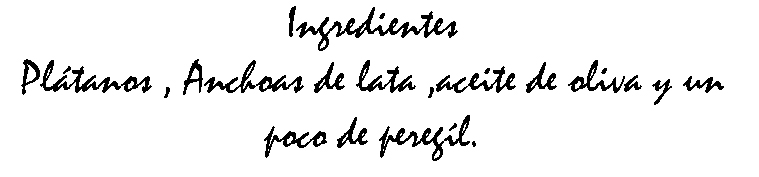 Ingredientes
Plátanos , Anchoas de lata ,aceite de oliva y un
poco de peregíl.